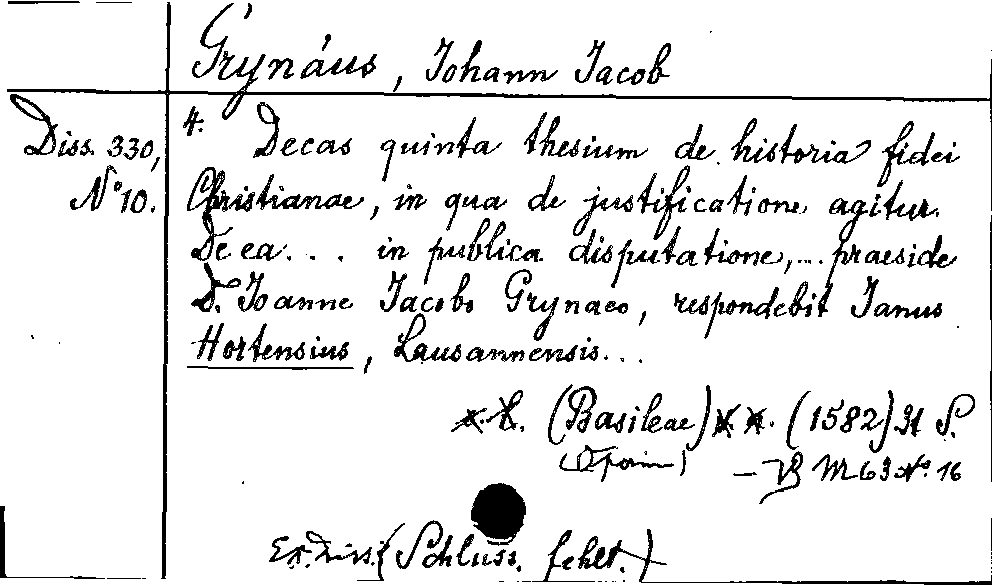 Grynäus, Johann Jacob
Diss. 330, N° 10.
4. Decas quinta thesium de historia fidei
Christianae, in qua de justificatione agitur.
De ea... in publica disputatione,... praeside
D. Joanne Jacobo Grynaeo, respondebit Janus
Hortensius, Lausannensis...
(Basileae) (1582)
(Oporin) - VB M 63 N° 16
Ex. Diss. (Schluss fehlt.)